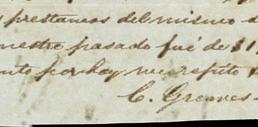 prestamos del mismo
mestre pasado fué de $1
nto por hoy me repito
C. Greaves